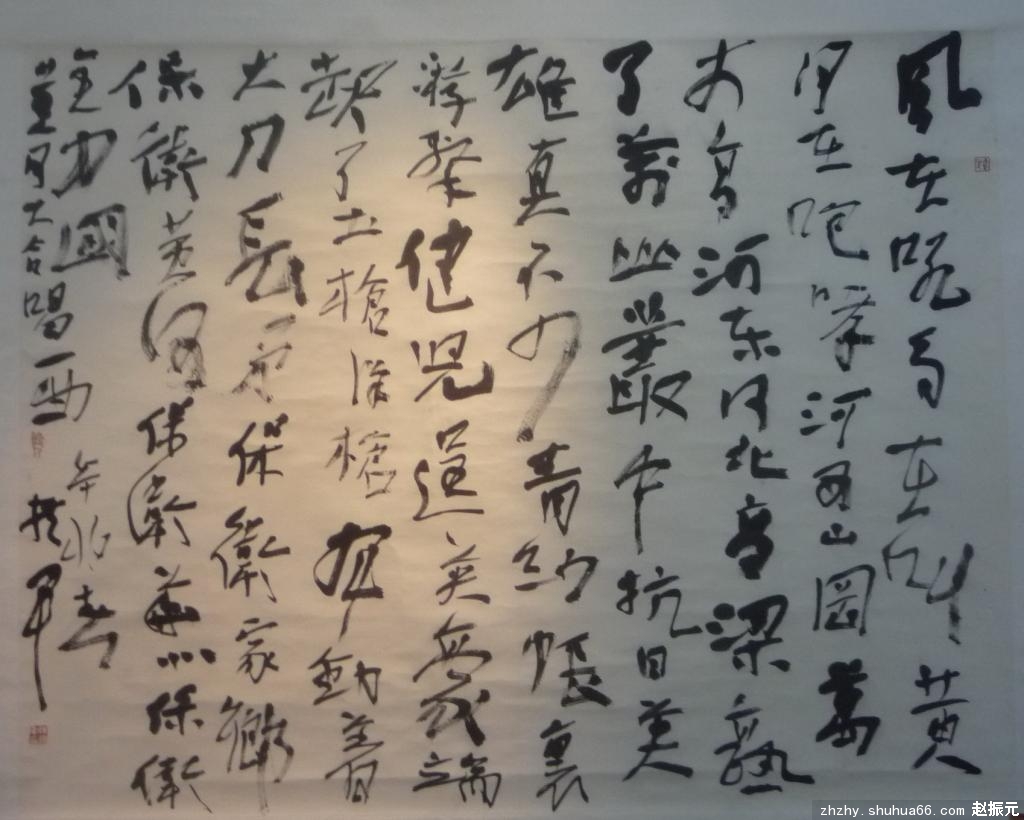 風在吼馬在叫黄
河在咆哮河西山岡萬
丈高河東河北高梁熟
了萬山叢中抗日英
雄真不少青紗帳裏
游擊健児逞英豪端
起了土槍洋槍揮動着
大刀長矛保衛家鄉
保衛黄河保衛華北保衛
全中國
黄河大合唱一曲
春
zhzhy.shuhua66.com 赵振元